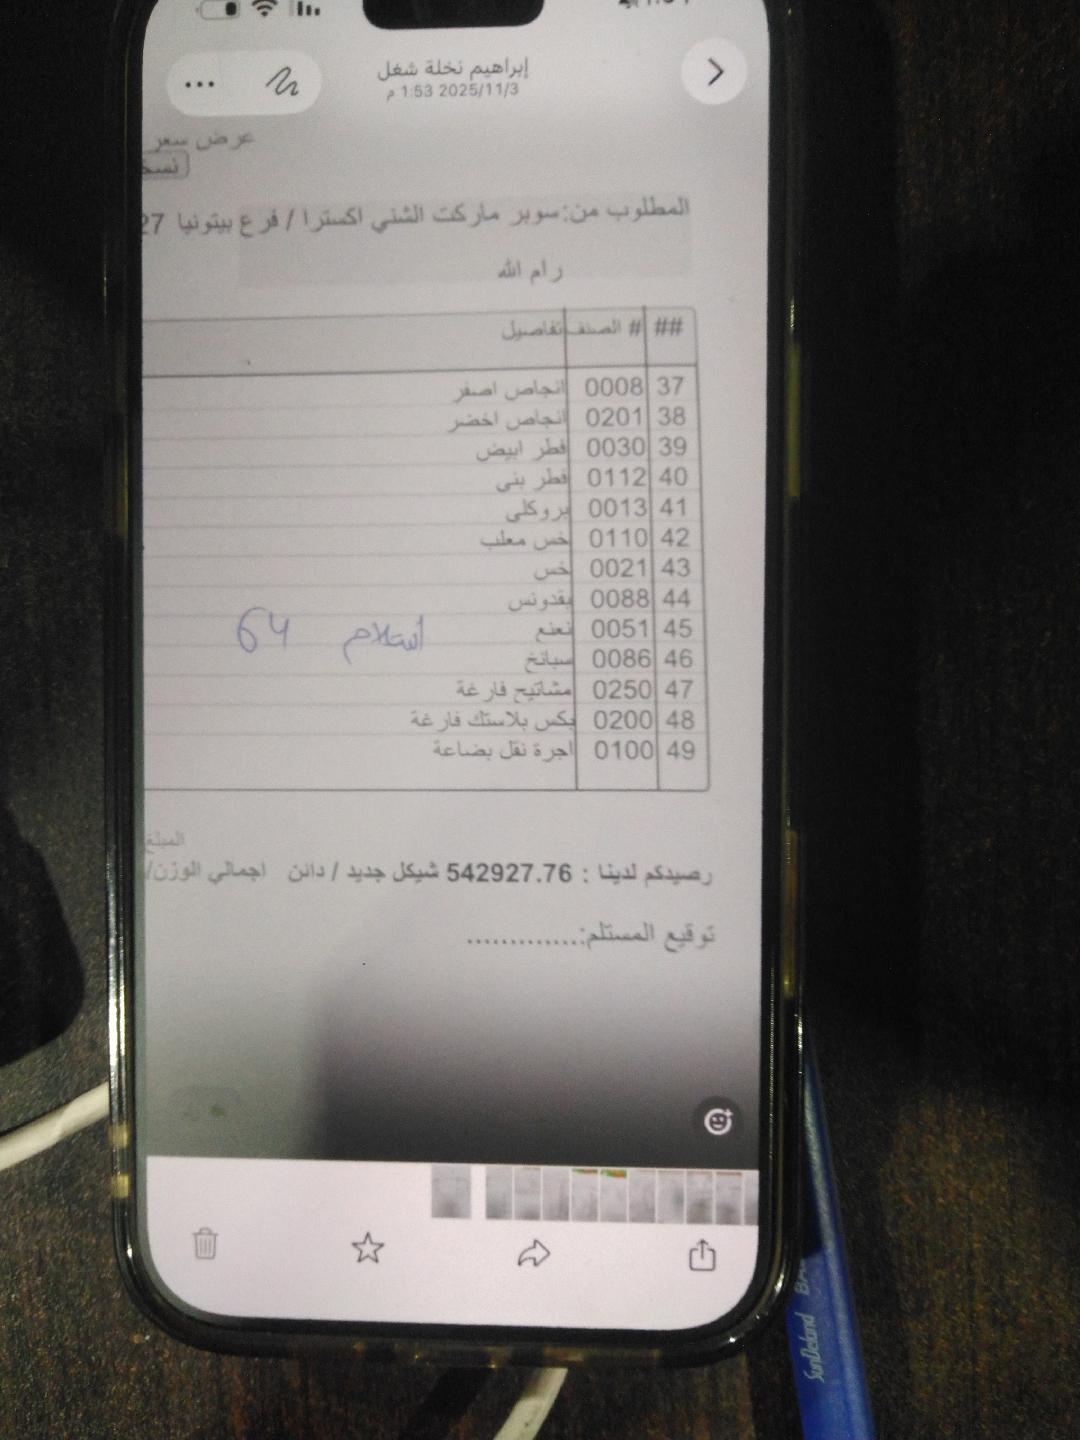 إبراهيم نخلة شغل
2025/11/3 1:53 م
عرض سعر
المطلوب من:سوبر ماركت الشني اكسترا / فرع بيتونيا 27
رام الله
## # الصنف تفاصيل
37 0008 انجاص اصفر
38 0201 انجاص اخضر
39 0030 فطر ابيض
40 0112 فطر بني
41 0013 بروكلي
42 0110 خس معلب
43 0021 خس
44 0088 بقدونس
45 0051 نعنع
استلام 64
46 0086 سبانخ
47 0250 مشاتيح فارغة
48 0200 بكس بلاستك فارغة
49 0100 اجرة نقل بضاعة
المبلغ
رصيدكم لدينا : 542927.76 شيكل جديد / دائن اجمالي الوزن/
توقيع المستلم:..............
SunDeland